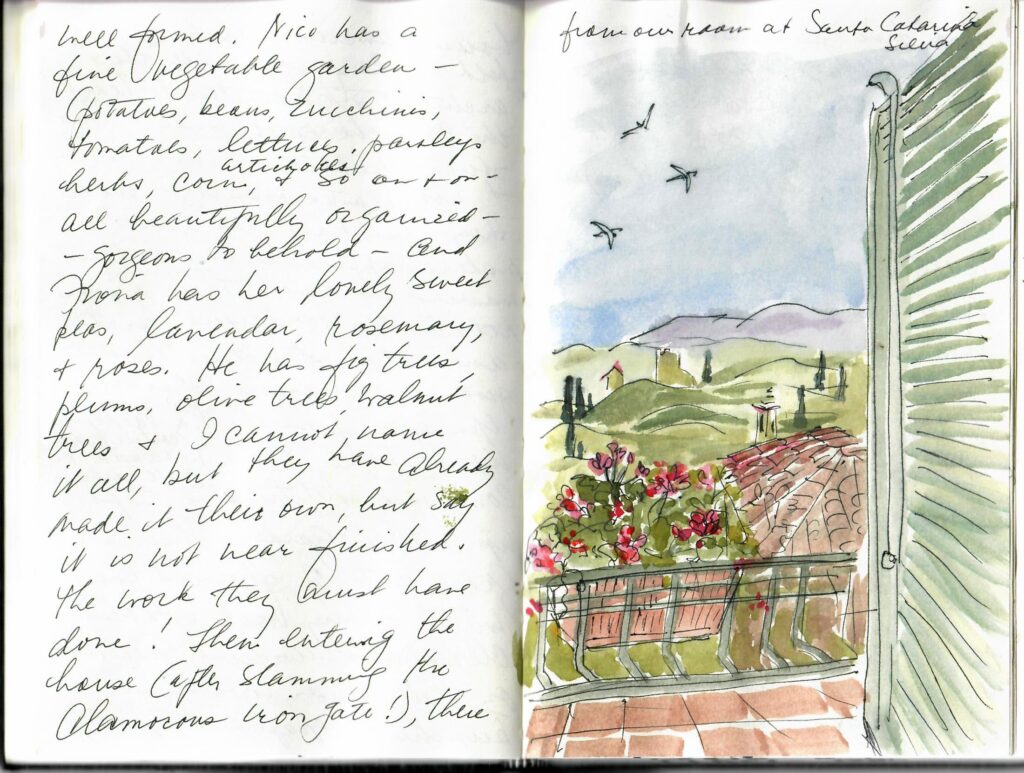 well formed. Nico has a
fine vegetable garden –
(potatoes, beans, zucchinis,
tomatoes, lettuces, parsleys
herbs, corn, artichokes & so on & on –
all beautifully organized –
– gorgeous to behold – and
Fiona has her lovely sweet
peas, lavendar, rosemary,
& roses. He has fig trees,
plums, olive trees, walnut
trees & I cannot name
it all, but they have already
made it their own, but say
it is not near finished.
The work they must have
done! Then entering the
house (after slamming the
clamorous iron gate!), there
from our room at Santa Catarina
Siena